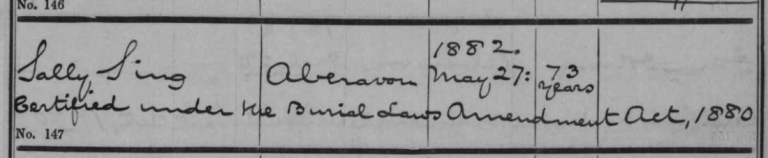 No. 146
1882.
Sally Sing Aberavon May 27: 73 years
Certified under the Burial Laws Amendment Act, 1880
No. 147